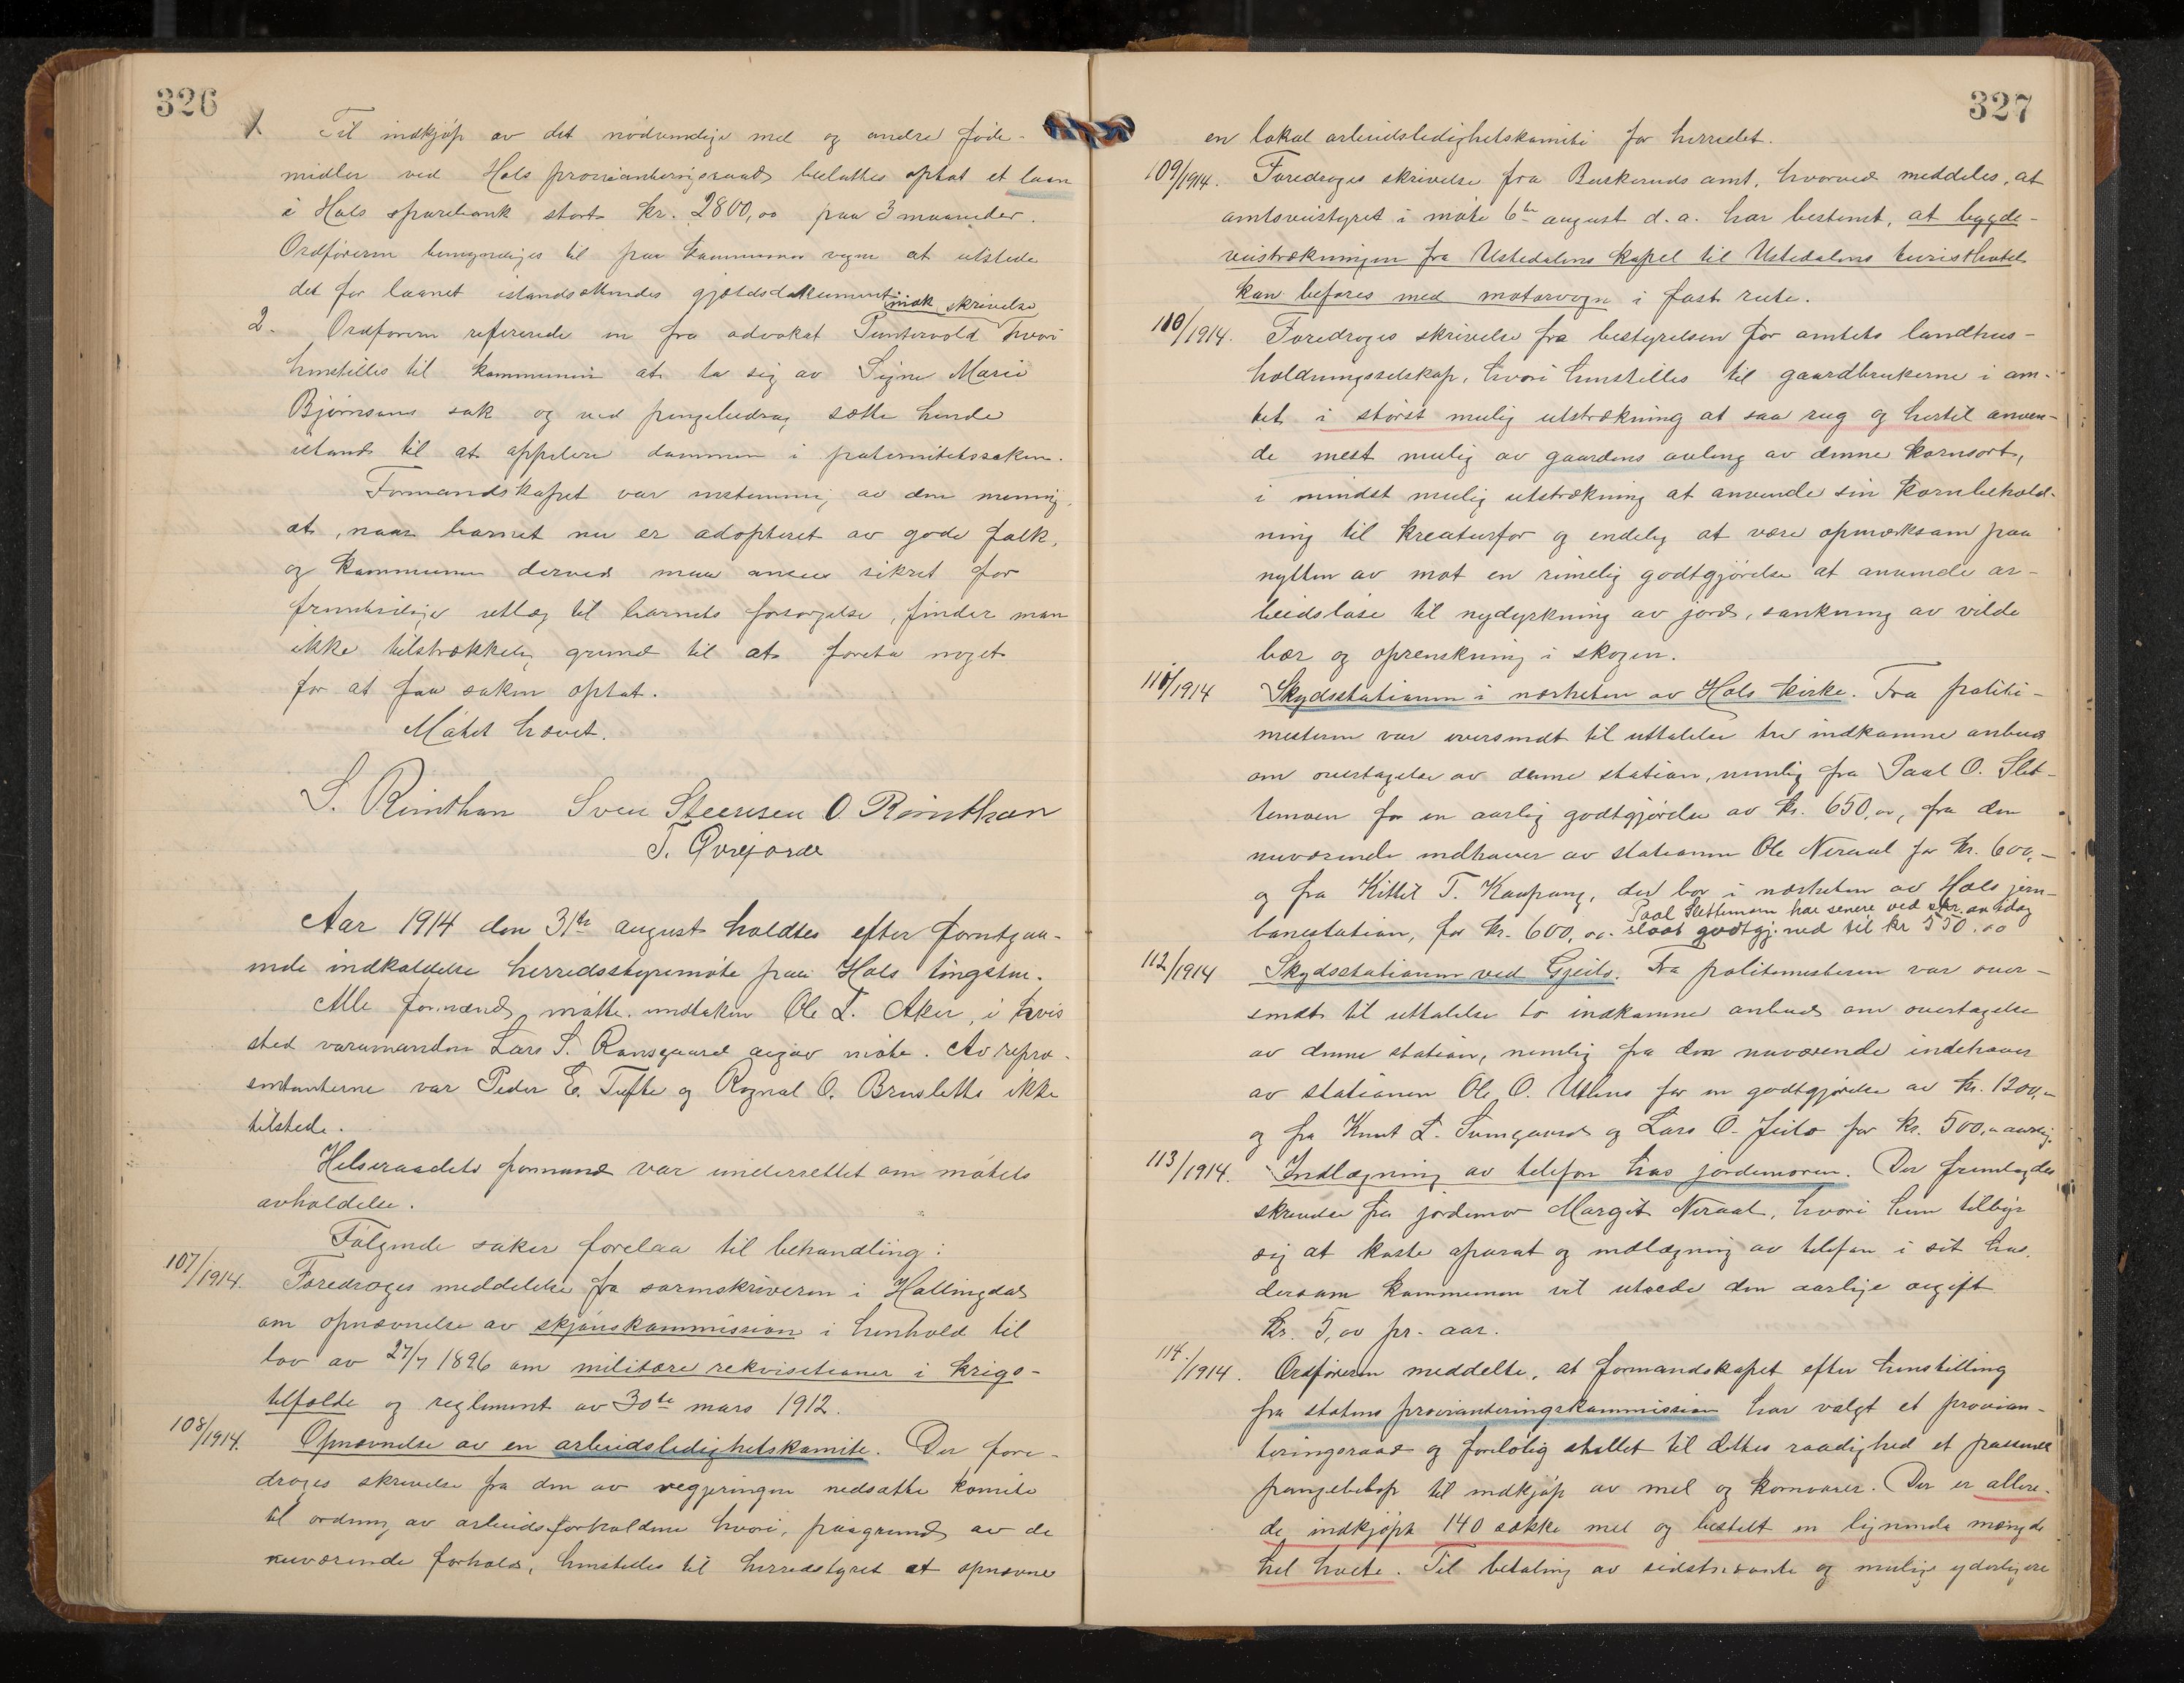 326
1. Til indkjøp av det nødvendige mel og andre føde-
midler ved Hols provianteringsraad besluttes optat et laan
i Hols sparebank stort kr. 2800,00 paa 3 maaneder.
Ordføreren bemyndiges til paa kommunens vegne at utstede
det for laanet istandsættendes gjældsdokument.
2. Ordføreren refererede en inok skrivelse fra advokat Puntervold hvori
henstilles til kommunen at ta sig av Signe Marie
Bjørnsens sak og ved pengebidrag sætte hende
istand til at appelere dommen i paternitetssaken.
Formandskapet var enstemmig av den mening,
at, naar barnet nu er adopteret av gode folk,
og kommunen derved maa ansees sikret for
fremtidige utlæg til barnets forsørgelse, finder man
ikke tilstrækkelig grund til at foreta noget
for at faa saken optat.
Møtet hævet.
S. Reinthon Sven Steensen O Reinthon
T. Øvrejorde
Aar 1914 den 31te august holdtes efter forutgaa-
ende indkaldelse herredsstyremøte paa Hols tingstue.
Alle formænd møtte undtaken Ole L. Aker, i hvis
sted varamanden Lars S. Ransgaard avgav møte. Av repræ-
sentanterne var Peder E. Tufte og Ragnal O. Brusletto ikke
tilstede.
Helseraadets formand var underrettet om møtets
avholdelse.
Følgende saker forelaa til behandling:
107/1914. Foredroges meddelelse fra sorenskriveren i Hallingdal
om opnævnelse av skjønskommission i henhold til
lov av 27/7 1896 om militære rekvisitioner i krigs-
tilfælde og reglement av 30te mars 1912.
108/1914. Opnævnelse av en arbeidsledighetskomite. Der fore-
droges skrivelse fra den av regjeringen nedsatte komite
til ordning av arbeidsforholdene hvori, paagrund av de
nuværende forhold, henstilles til herredstyret at opnævne
327
en lokal arbeidsledighetskomite for herredet.
109/1914. Foredroges skrivelse fra Buskeruds amt, hvorved meddeles, at
amtsveistyret i møte 6te august d.a. har bestemt, at bygde-
veistrækningen fra Ustedalens kapel til Ustedalens turisthotel
kan befares med motorvogn i fast rute.
110/1914. Foredroges skrivelse fra bestyrelsen for amtets landhus-
holdningsselskap, hvori henstilles til gaardbrukerne i am-
tet i størst mulig utstrækning at saa rug og hertil anven-
de mest mulig av gaardens avling av denne kornsort,
i mindst mulig utstrækning at anvende sin kornbehold-
ning til kreaturfor og endelig at være opmerksom paa
nytten av mot en rimelig godtgjørelse at anvende ar-
beidsløse til nydyrkning av jord, sankning av vilde
bær og oprenskning i skogen.
111/1914 Skydsstationen i nærheten av Hols kirke. Fra politi-
mesteren var oversendt til uttalelse tre indkomne anbud
om overtagelse av denne station, nemlig fra Paal O. Slet-
temoen for en aarlig godtgjørelse av kr. 650,00, fra den
nuværende indhaver av stationen Ole Neraal for kr. 600,-
og fra Kittil T. Kaupang, der bor i nærheten av Hols jern-
banestation, for kr. 600,00. Paal Slettemoen har senere ved skr. av idag
slaat godtgj. ned til kr 550.00
112/1914 Skydsstationen ved Gjeilo. Fra politimesteren var over-
sendt til uttalelse to indkomne anbud om overtagelse
av denne station, nemlig fra den nuværende indehaver
av stationen Ole O. Ustens for en godtgjørelse av kr. 1200,-
og fra Knut L. Sumgaard og Lars O. Jeilo for kr. 500,- aarlig.
113/1914. Indlægning av telefon hos jordemoren. Der fremlagdes
skrivelse fra jordemor Margit Neraal, hvori hun tilbyr
sig at koste aparat og indlægning av telefon i sit hus,
dersom kommunen vil utrede den aarlige avgift
kr. 5,00 pr. aar.
114./1914. Ordføreren meddelte, at formandskapet efter henstilling
fra statens provianteringskommission har valgt et provian-
teringsraad og foreløbig stillet til dettes raadighed et passende
pengebeløp til indkjøp av mel og kornvarer. Der er allere-
de indkjøpt 140 sække mel og bestilt en lignende mængde
hel hvete. Til betaling av sidstnævnte og mulige yderligere